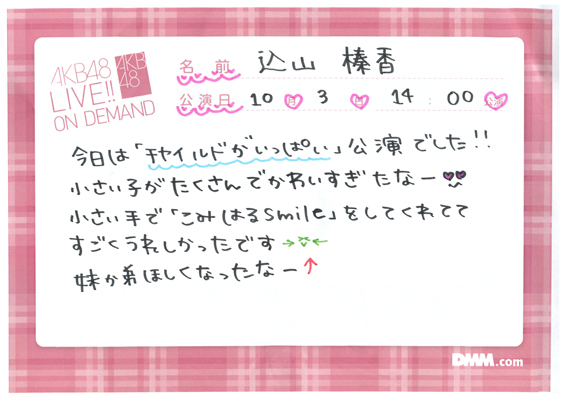 AKB48
LIVE!!
ON DEMAND
AKB
48
名 前 込山 榛香
公演日 10 月 3 日 14:00 公演
今日は「チャイルドがいっぱい」公演でした!!
小さい子がたくさんでかわいすぎたなー
小さい手で「こみはるSmile」をしてくれてて
すごくうれしかったです→←
妹か弟ほしくなったなー↑
DMM.com